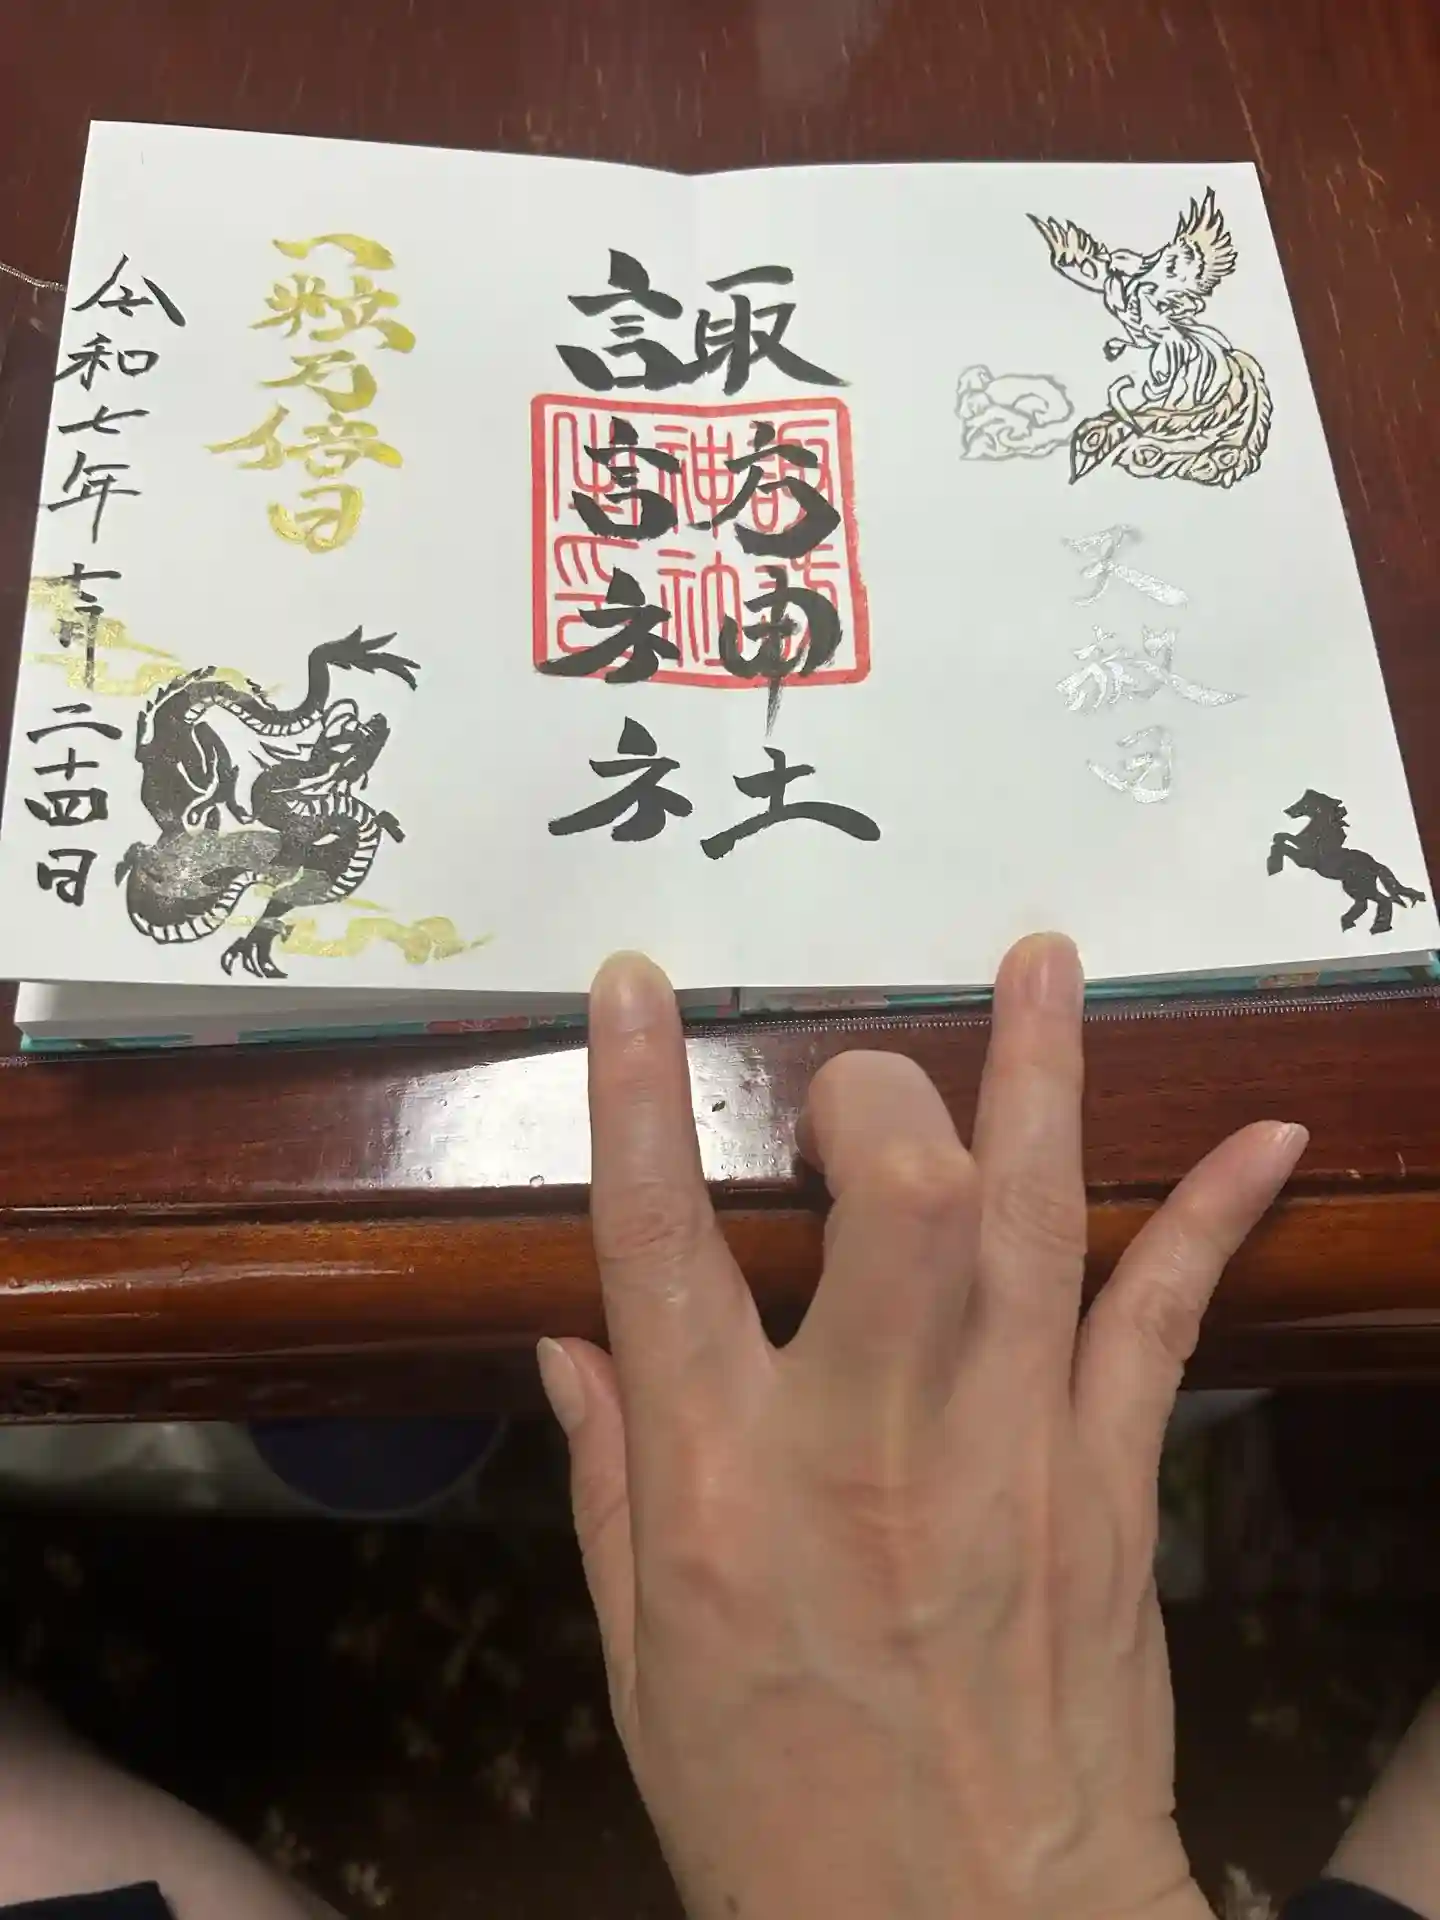 天赦日
諏訪神社
諏訪
神社
一粒万倍日
令和七年七月二十四日